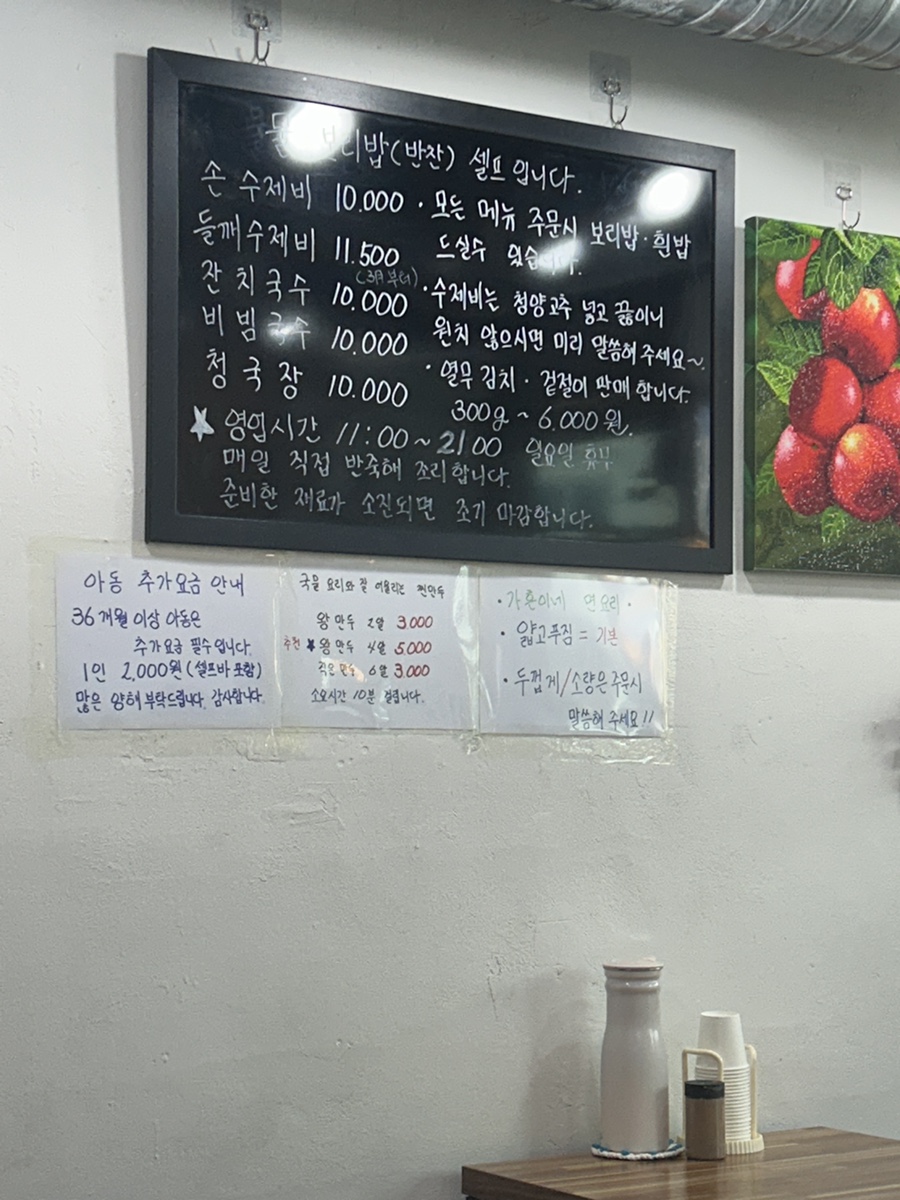 보리밥(반찬) 셀프입니다.
손 수제비 10.000
들깨수제비 11.500
(3月부터)
잔치국수 10.000
비빔국수 10.000
청국장 10.000
· 모든 메뉴 주문시 보리밥·흰밥
드실수 있습니다.
· 수제비는 청양고추 넣고 끓이니
원치 않으시면 미리 말씀해주세요~.
· 열무김치 · 겉절이 판매 합니다.
300g ~ 6.000원.
★ 영업시간 11:00 ~ 21:00 일요일 휴무
매일 직접 반죽해 조리합니다.
준비한 재료가 소진되면 조기 마감합니다.
아동 추가요금 안내
36개월 이상 아동은
추가요금 필수입니다.
1인 2,000원 (셀프바 포함)
많은 양해 부탁드립니다. 감사합니다.
국물 요리와 잘 어울리는 찐만두
왕만두 2알 3000
추천 ★ 왕만두 4알 5,000
작은만두 6알 3,000
소요시간 10분 걸립니다.
면 요리 ·
· 얇고푸짐 = 기본
· 두껍게/소량은 주문시
말씀해 주세요!!